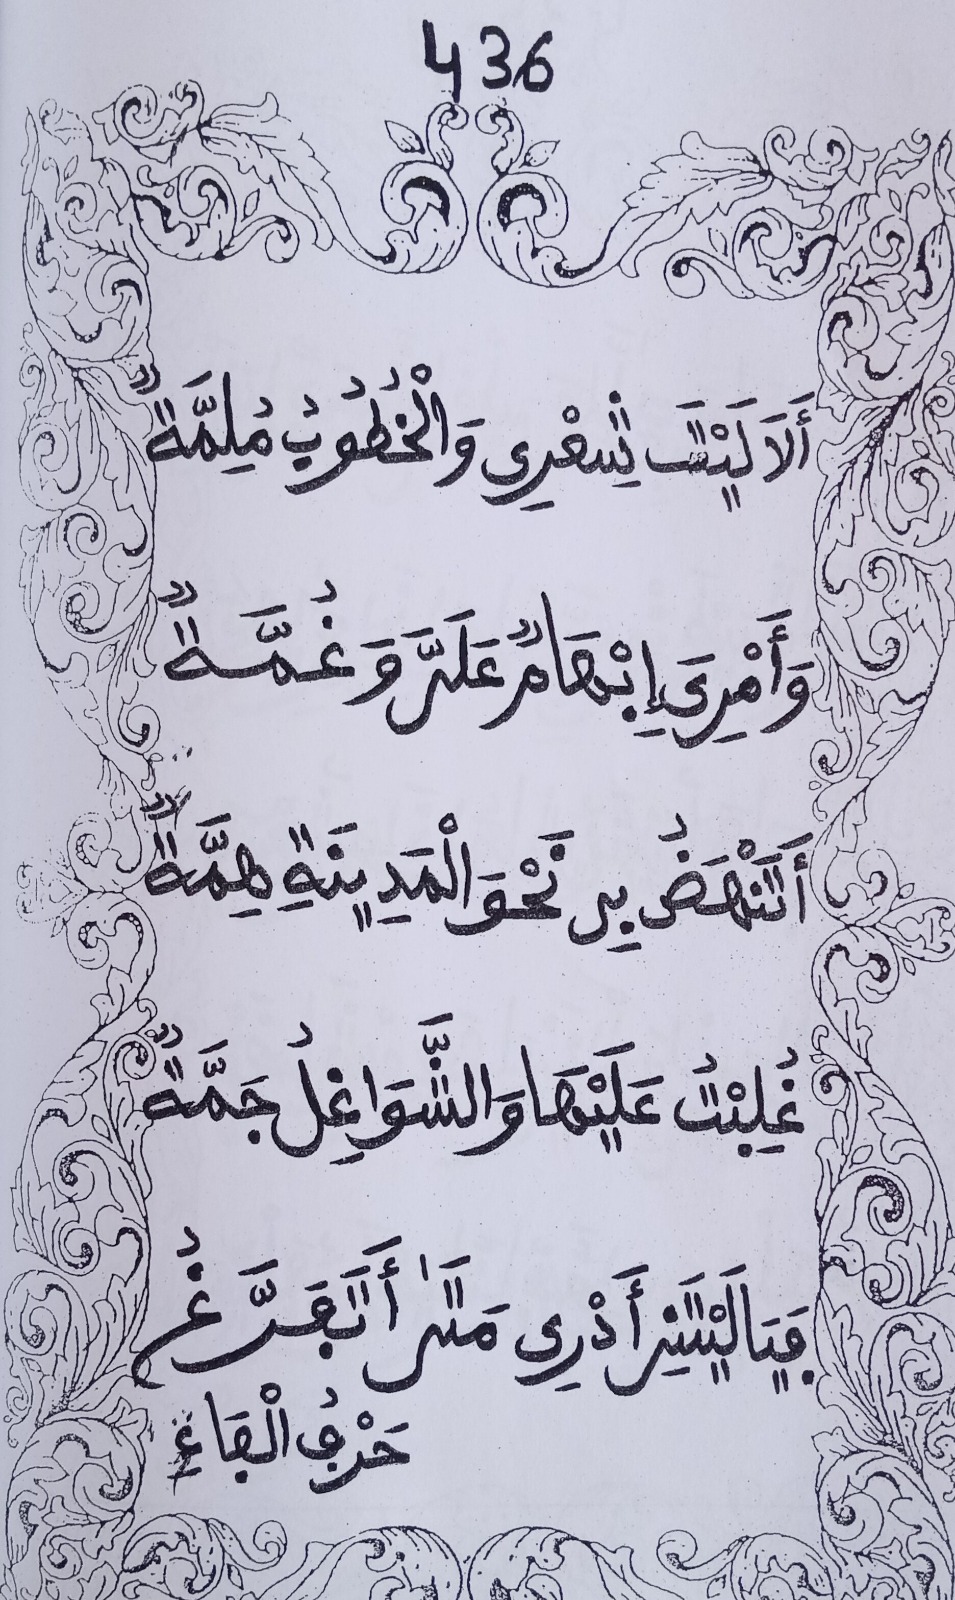 436
أَلَا لَيْتَ شِعْرِي وَالْخُطُوبُ مُلِمَّةٌ
وَأَمْرِيَ إِبْهَامٌ عَلَيَّ وَغُمَّةٌ
أَتَنْهَضُ بِي نَحْوَ الْمَدِينَةِ هِمَّةٌ
غُلِبْتُ عَلَيْهَا وَالشَّوَاغِلُ جَمَّةٌ
فَيَا لَيْتَنِي أَدْرِي مَتَى أَتَفَرَّغُ
حَرْفُ الْفَاءِ